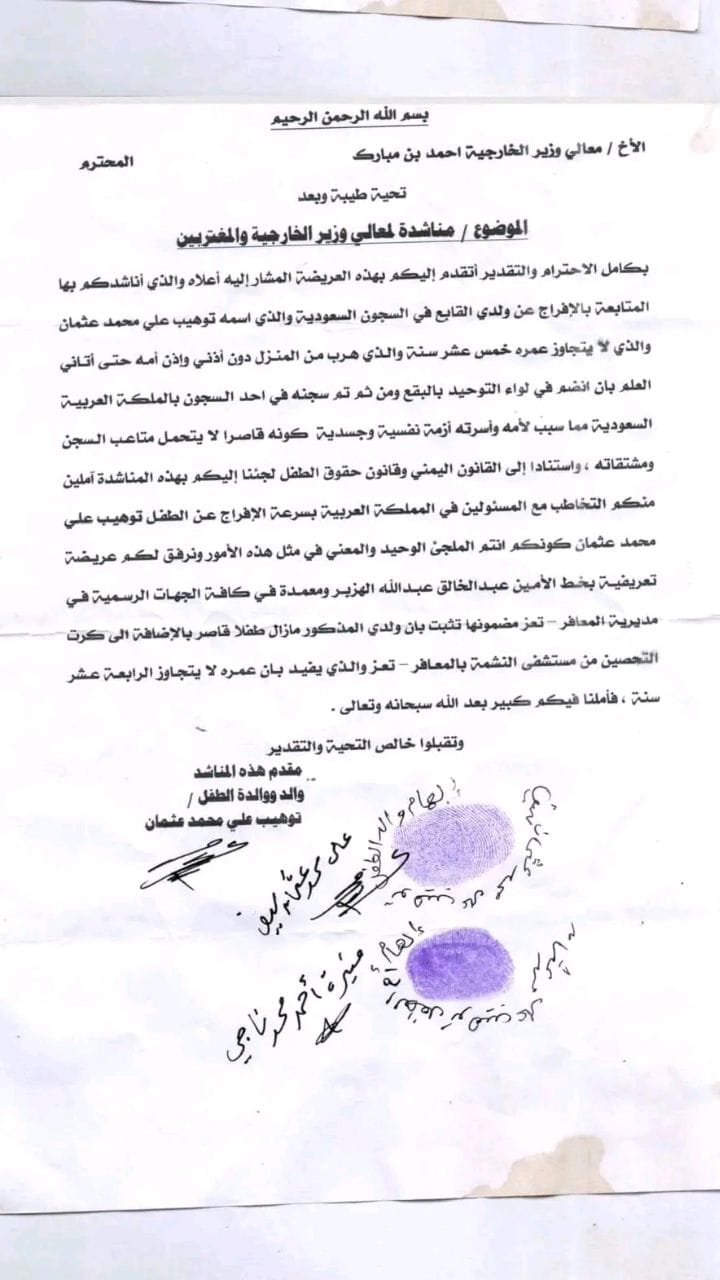 بسم الله الرحمن الرحيم
الأخ / معالي وزير الخارجية احمد بن مبارك المحترم
تحية طيبة وبعد
الموضوع / مناشدة لمعالي وزير الخارجية والمغتربين
بكامل الاحترام والتقدير أتقدم إليكم بهذه العريضة المشار إليه أعلاه والذي أناشدكم بها
المتابعة بالإفراج عن ولدي القابع في السجون السعودية والذي اسمه توهيب علي محمد عثمان
والذي لا يتجاوز عمره خمس عشر سنة والذي هرب من المنزل دون أذني وإذن أمه حتى أتاني
العلم بان انضم في لواء التوحيد بالبقع ومن ثم تم سجنه في احد السجون بالملكة العربية
السعودية مما سبب لأمه وأسرته أزمة نفسية وجسدية كونه قاصرا لا يتحمل متاعب السجن
ومشتقاته ، واستنادا إلى القانون اليمني وقانون حقوق الطفل لجئنا إليكم بهذه المناشدة آملين
منكم التخاطب مع المسئولين في المملكة العربية بسرعة الإفراج عن الطفل توهيب علي
محمد عثمان كونكم انتم الملجئ الوحيد والمعني في مثل هذه الأمور ونرفق لكم عريضة
تعريفية بخط الأمين عبدالخالق عبدالله الهزبر ومعمدة في كافة الجهات الرسمية في
مديرية المعافر – تعز مضمونها تثبت بان ولدي المذكور مازال طفلا قاصر بالإضافة الى كرت
التحصين من مستشفى النشمة بالمعافر – تعز والذي يفيد بان عمره لا يتجاوز الرابعة عشر
سنة ، فأملنا فيكم كبير بعد الله سبحانه وتعالى .
وتقبلوا خالص التحية والتقدير
مقدم هذه المناشد
والد ووالدة الطفل /
توهيب علي محمد عثمان
إبهام والد الطفل
توهيب علي محمد عثمان
علي محمد عثمان
إبهام أم الطفل توهيب علي
محمد عثمان
منيرة أحمد محمد ناجي